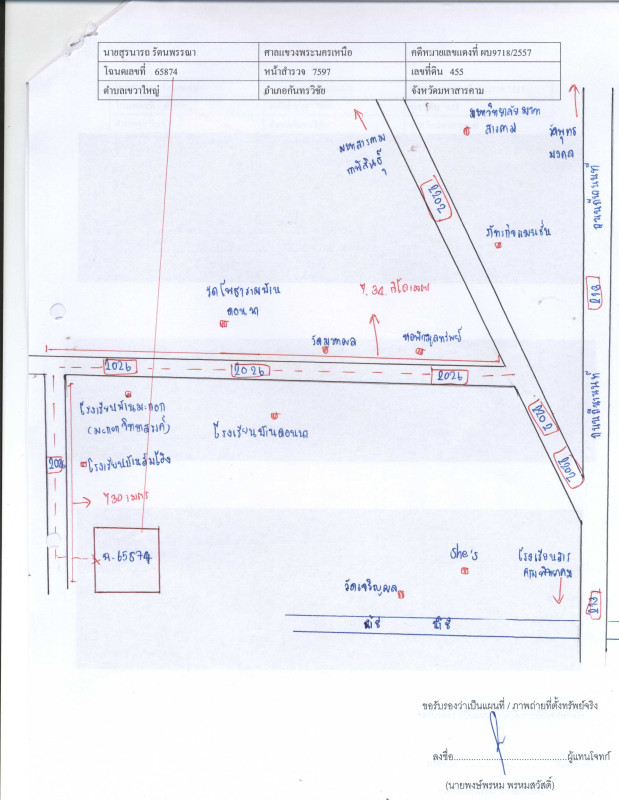 นายสุรนารถ รัตนพรรณา
ศาลแขวงพระนครเหนือ
คดีหมายเลขแดงที่ ผบ9718/2557
โฉนดเลขที่ 65874
หน้าสำรวจ 7597
เลขที่ดิน 455
ตำบลเขวาใหญ่
อำเภอกันทรวิชัย
จังหวัดมหาสารคาม
มหาวิทยาลัยมหา
สารคาม
วัดพุทธ
มงคล
มหาสารคาม
กาฬสินธุ์
2202
ถนนถีนานนท์
213
วัดโพธารามบ้าน
ดอนนา
วัดมะกอก
2026
2026
2026
2202
2202
ถนนถีนานนท์
โรงเรียนบ้านมะกอก
โรงเรียนบ้านดอนนา
730 เมตร
ฉ.65874
She's
โรงเรียนสาร
คามพิทยาคม
วัดเจริญผล
213
ขอรับรองว่าเป็นแผนที่ / ภาพถ่ายที่ตั้งทรัพย์จริง
ลงชื่อ...........................................ผู้แทนโจทก์
(นายพงษ์พรหม พรหมสวัสดิ์)